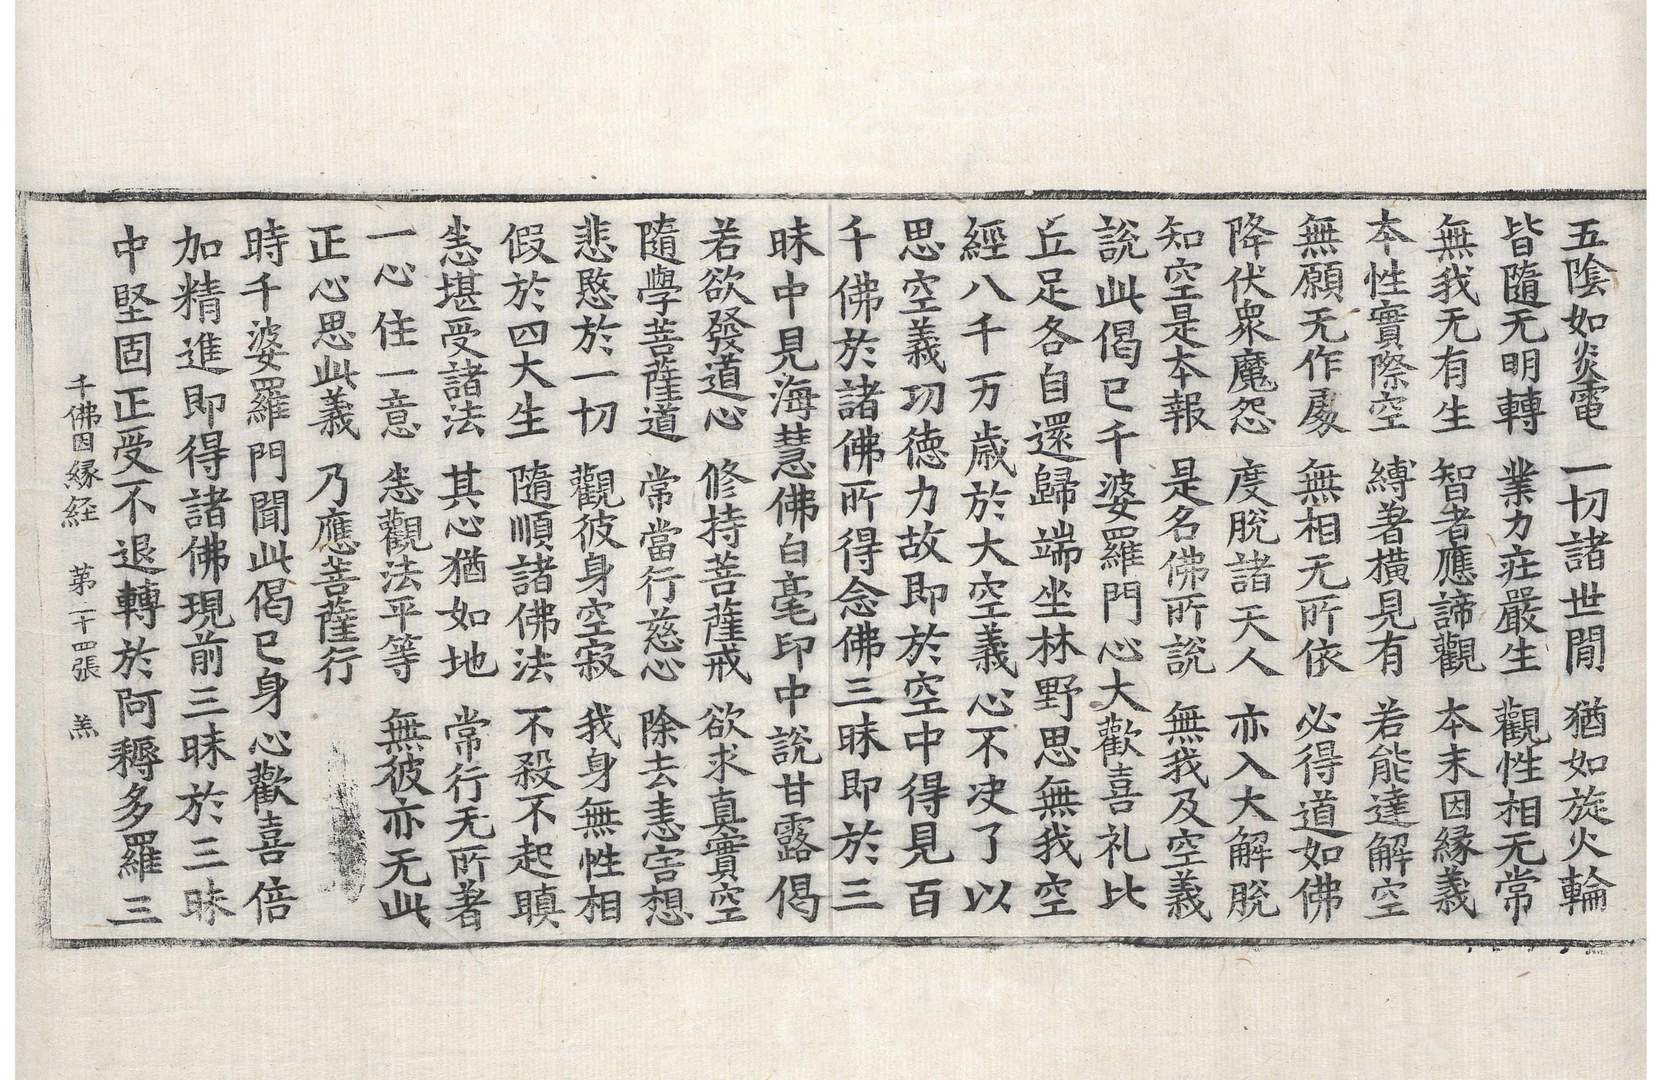 五陰如炎電　一切諸世閒　猶如旋火輪
皆隨无明轉　業力莊嚴生　觀性相无常
無我无有生　智者應諦觀　本末因縁義
本性實際空　縛著橫見有　若能達解空
無願无作處　無相无所依　必得道如佛
降伏衆魔怨　度脫諸天人　亦入大解脫
知空是本報　是名佛所說　無我及空義
說此偈已千婆羅門心大歡喜礼比
丘足各自還歸端坐林野思無我空
經八千万歲於大空義心不决了以
思空義功德力故即於空中得見百
千佛於諸佛所得念佛三昧即於三
昧中見海慧佛白毫印中說甘露偈
若欲發道心　修持菩薩戒　欲求真實空
隨學菩薩道　常當行慈心　除去恚害想
悲愍於一切　觀彼身空寂　我身無性相
假於四大生　隨順諸佛法　不殺不起瞋
悉堪受諸法　其心猶如地　常行无所著
一心住一意　悉觀法平等　無彼亦无此
正心思此義　乃應菩薩行
時千婆羅門聞此偈已身心歡喜倍
加精進即得諸佛現前三昧於三昧
中堅固正受不退轉於阿耨多羅三
千佛因縁経　第二十四張　羔